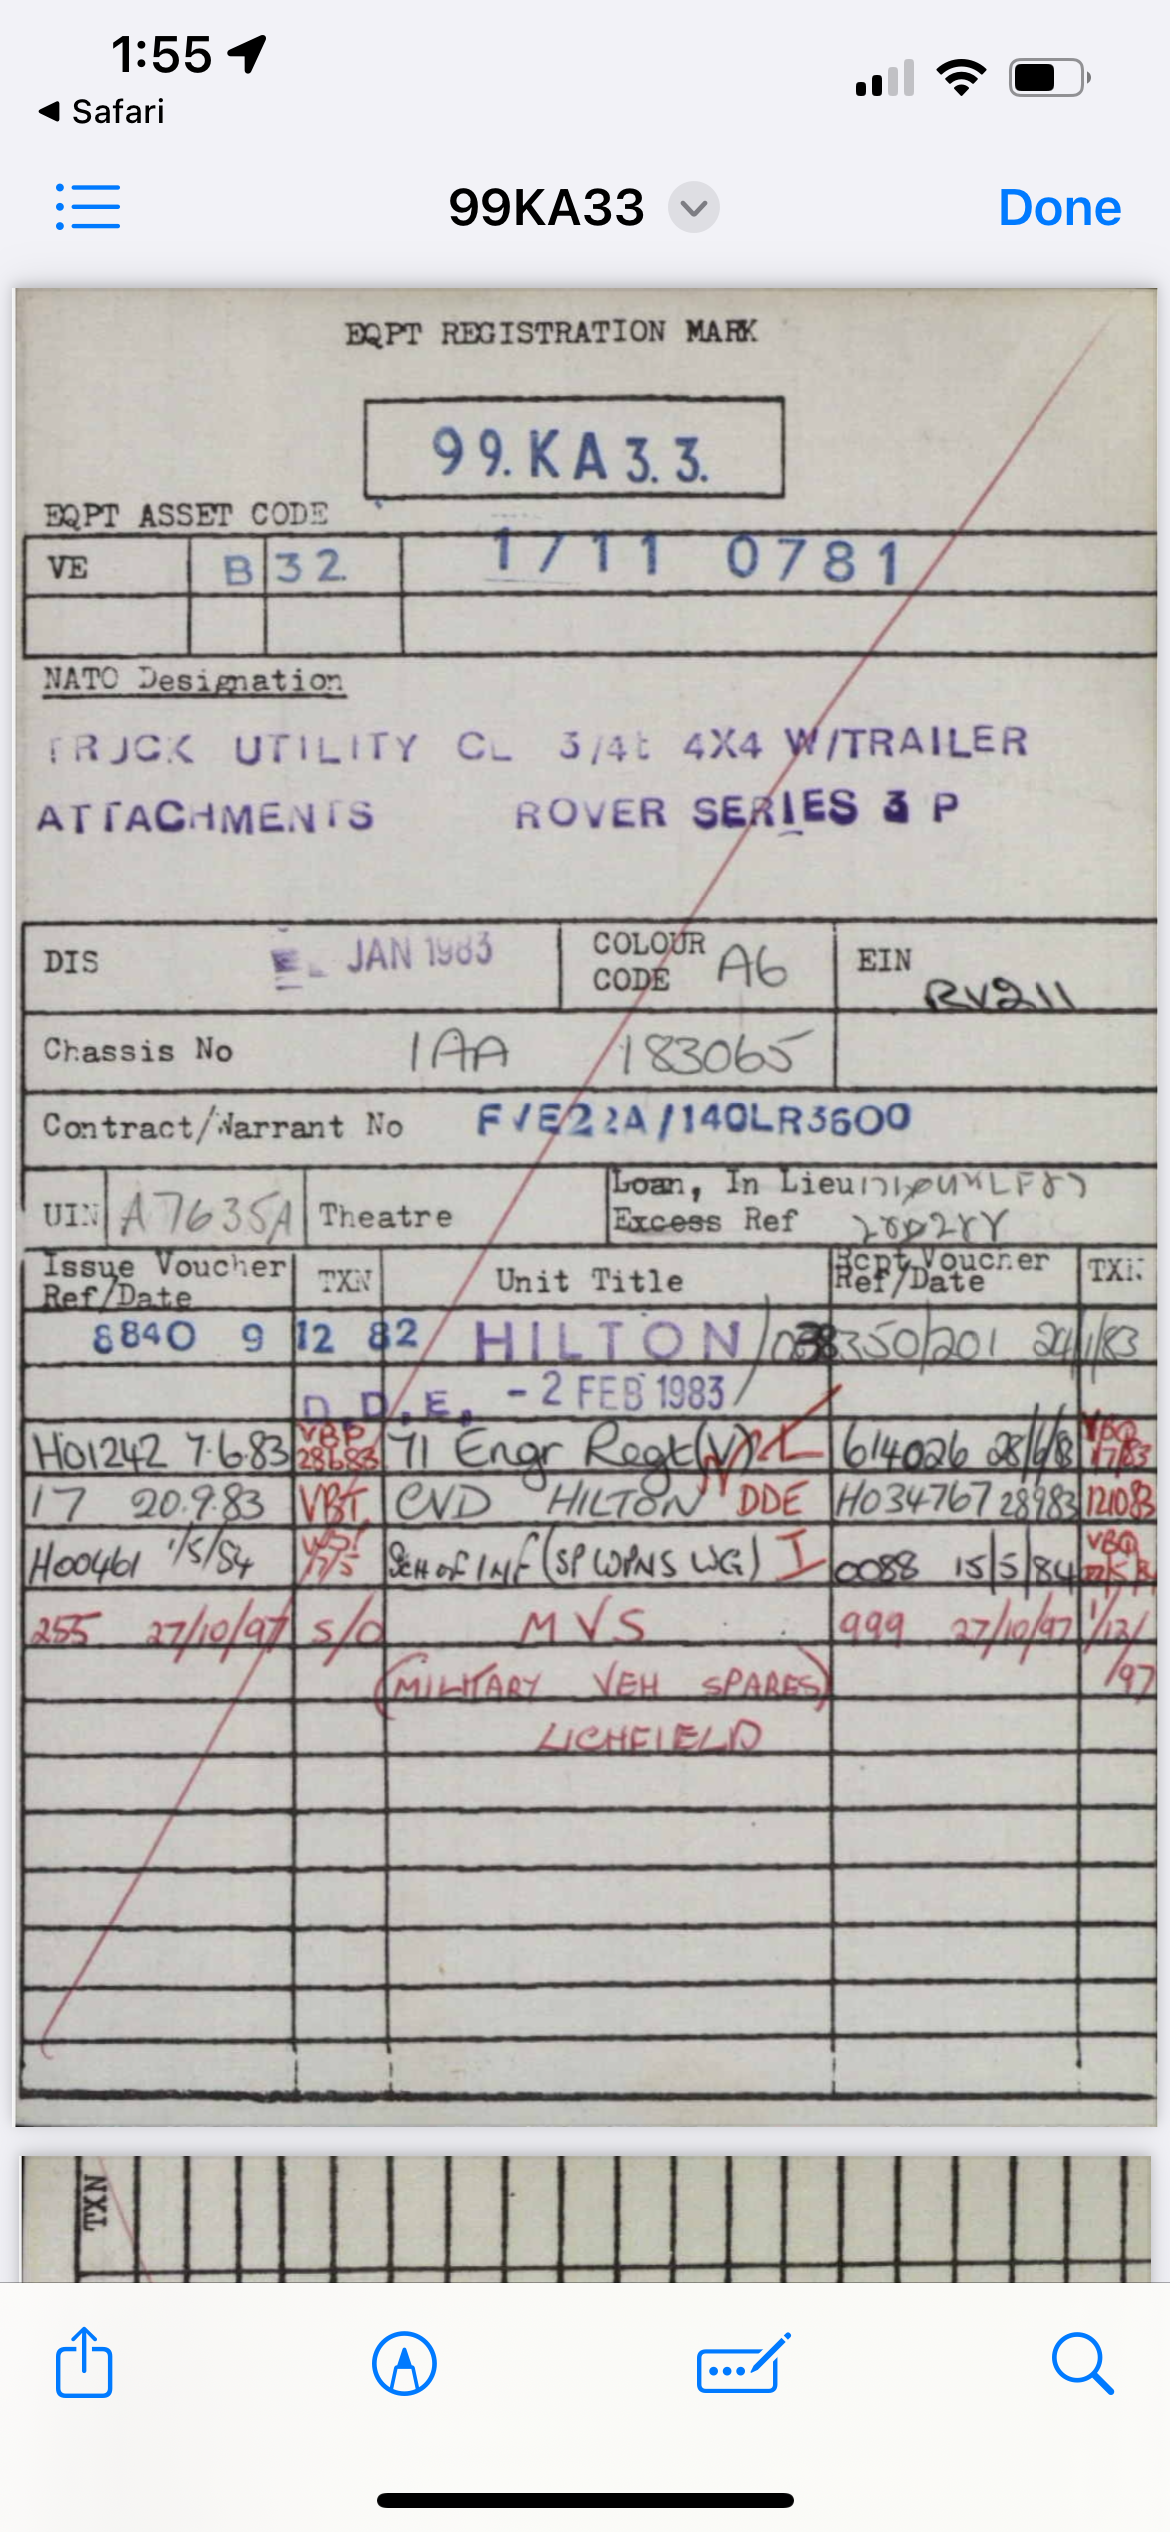 1:55
Safari
99KA33
Done
EQPT REGISTRATION MARK
99.KA33.
EQPT ASSET CODE
VE B 32 1711 0781
NATO Designation
TRUCK UTILITY CL 3/4t 4X4 W/TRAILER
ATTACHMENTS ROVER SERIES 3 P
DIS JAN 1983 COLOUR CODE A6 EIN RV211
Chassis No 1AA 183065
Contract/Warrant No FVE22A/140LR3600
UIN A7635A Theatre Loan, In Lieu
Excess Ref
Issue Voucher Ref/Date TXN Unit Title Rcpt Voucher Ref/Date TXN
8840 9 12 82 HILTON 350/201
D.D.E. -2 FEB 1983
H01242 7.6.83 VBP 28683 71 Engr Regt(V) 614026
17 20.9.83 VBT CVD HILTON DDE H034767 28983 121083
H00461 1/5/84 Sch of INF (SP WPNS WG) I 0088 15/5/84 VBQ
255 27/10/97 S/O MVS 999 27/10/97 1/12/97
(MILITARY VEH SPARES)
LICHFIELD
TXN